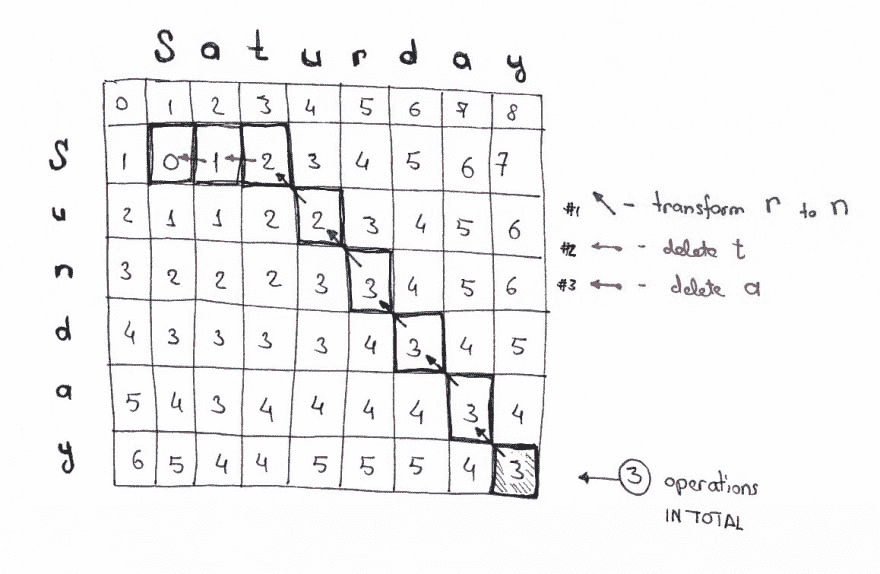 S a t u r d a y
0 1 2 3 4 5 6 7 8
S 1 0 1 2 3 4 5 6 7
u 2 1 1 2 2 3 4 5 6
n 3 2 2 2 3 3 4 5 6
d 4 3 3 3 3 4 3 4 5
a 5 4 3 4 4 4 4 3 4
y 6 5 4 4 5 5 5 4 3
#1 ↖ - transform r to n
#2 ← - delete t
#3 ← - delete a
← 3 operations
IN TOTAL